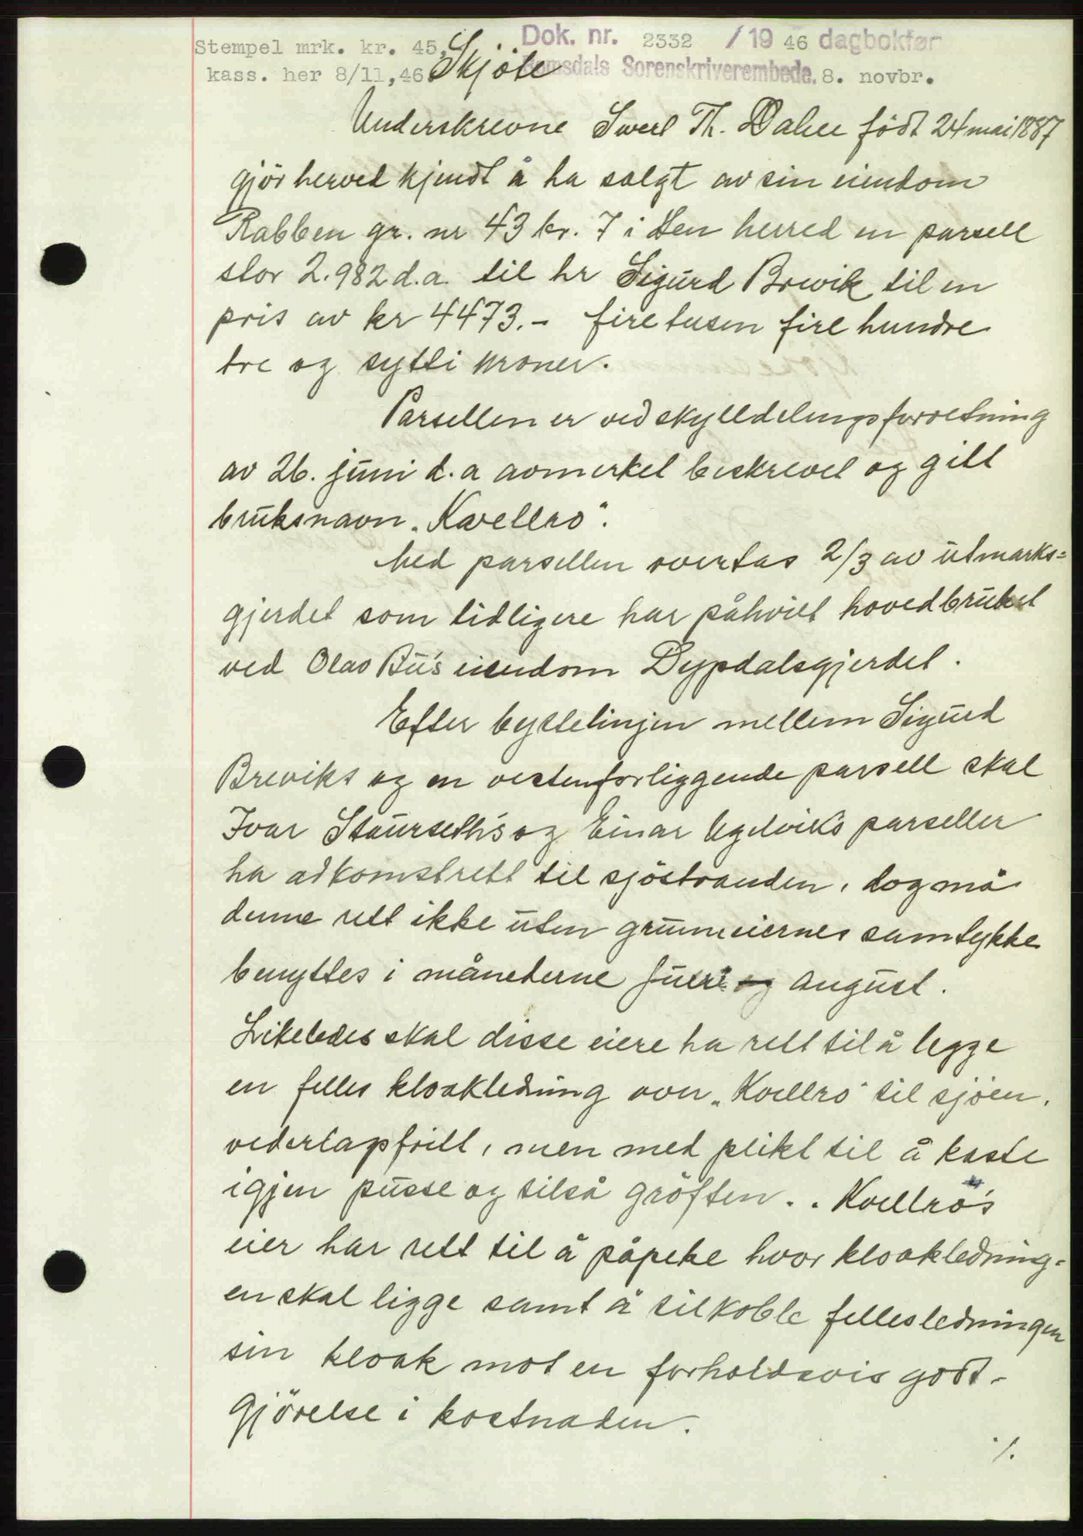 Stempel mrk. kr. 45,
kass. her 8/11,46
Dok. nr. 2332 /19 46 dagbokfør
Romsdals Sorenskriverembede. 8. novbr.
Skjöte
Underskrevne Th. Dahle født 24 mai 1887
gjör herved kjendt å ha solgt av sin eiendom
Rabben gr. nr 43 br. 7 i Hen herred en parsell
stor 2.982 d.a. til hr Sigurd Brevik til en
pris av kr 4473.- fire tusen fire hundre
tre og sytti kroner.
Parsellen er ved skylldelingsforretning
av 26. juni d.a avmerket beskrevet og gitt
bruksnavn „Kvellro“.
Med parsellen overtas 2/3 av utmarks=
gjerdet som tidligere har påhvilt hovedbruket
ved Olav Bu's eiendom Dypdalsgjerdet.
Efter byttelinjen mellem Sigurd
Breviks og en vestenforliggende parsell skal
Ivar Staurseth's og Einar parseller
ha adkomstrett til sjöstranden, dog må
denne rett ikke uten grunneiernes samtykke
benyttes i månederne Juli og August.
Likeledes skal disse eiere ha rett til å legge
en felles kloakledning over „Kvellro“ til sjöen,
vederlagsfritt, men med plikt til å kaste
igjen pusse og tilså gröften. . Kvellro's
eier har rett til å påpeke hvor kloakledning=
en skal ligge samt å tilkoble fellesledningen
sin kloak mot en forholdsvis godt-
gjörelse i kostnaden.
./.